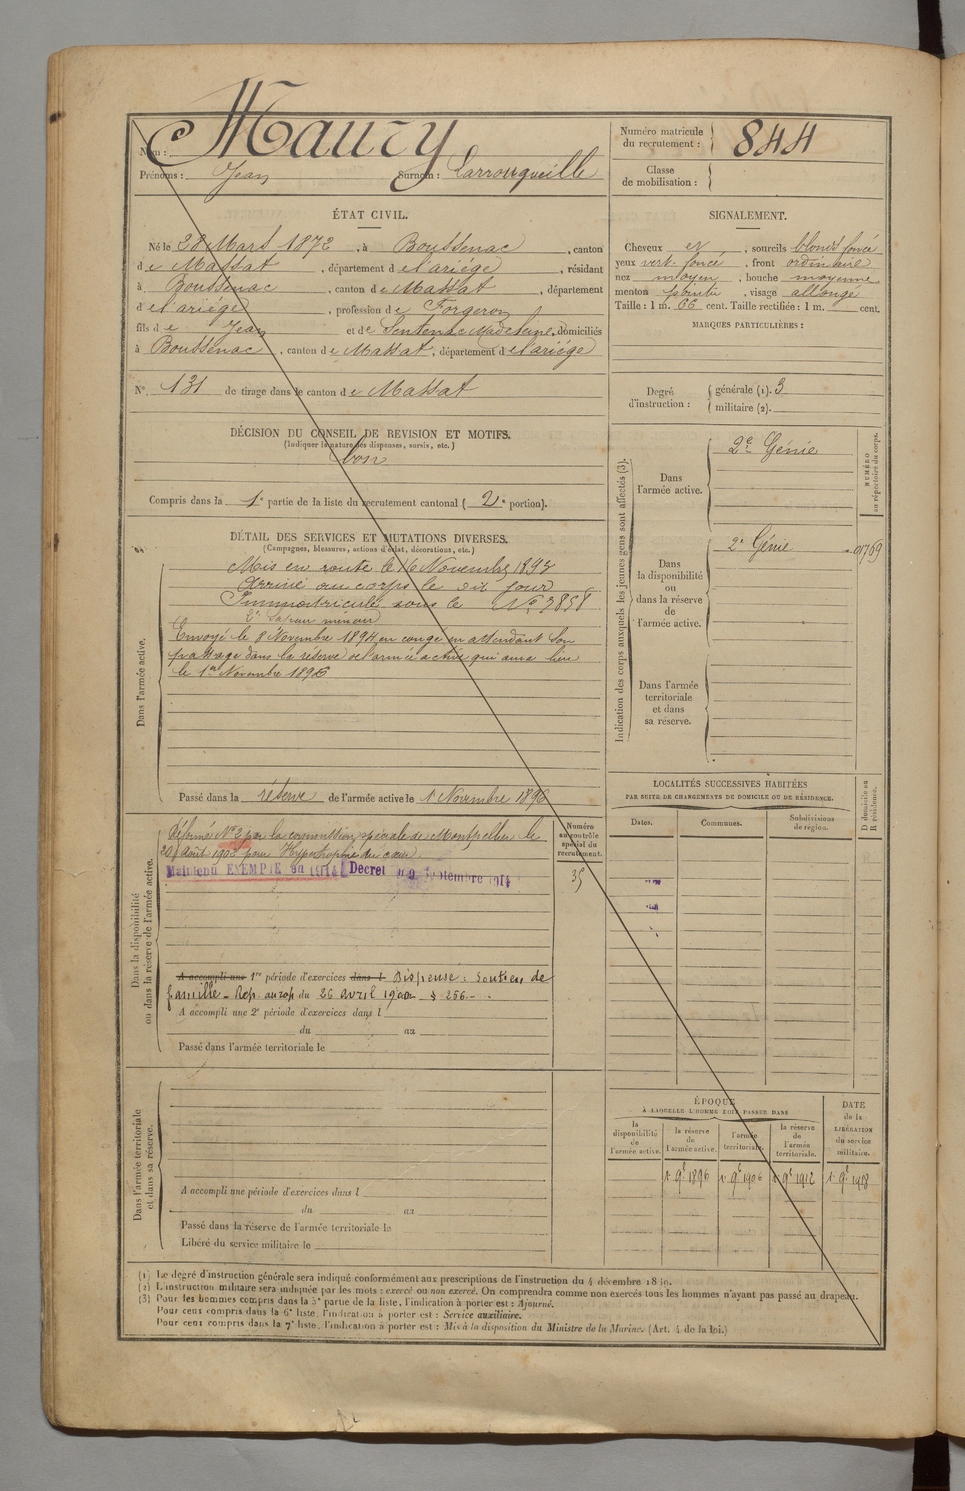 Nom : Maury
Prénoms : Jean Surnom : Larrouqueille
Numéro matricule du recrutement : 844
Classe de mobilisation :
ÉTAT CIVIL.
Né le 28 Mars 1872, à Boussenac, canton
de Massat, département de l'ariége, résidant
à Boussenac, canton de Massat, département
d el'ariége, profession de Forgeron
fils de Jean et de Sentenac Madeleine, domiciliés
à Boussenac, canton de Massat, département de l'ariége
N° 131 de tirage dans le canton de Massat
SIGNALEMENT.
Cheveux et, sourcils blonds foncé
yeux vert-foncé, front ordinaire
nez moyen, bouche moyenne
menton pointu, visage allongé
Taille : 1 m. 66 cent. Taille rectifiée : 1 m. cent.
MARQUES PARTICULIÈRES :
Degré d'instruction : générale (1). 3
militaire (2).
DÉCISION DU CONSEIL DE REVISION ET MOTIFS.
(Indiquer la nature des dispenses, sursis, etc.)
bon
Compris dans la 1e partie de la liste du recrutement cantonal (2e portion).
DÉTAIL DES SERVICES ET MUTATIONS DIVERSES.
(Campagnes, blessures, actions d'éclat, décorations, etc.)
Dans l'armée active.
Mis en route le 16 Novembre 1893
Arrivé au corps le dit jour
Immatriculé sous le N° 3858
2e Sapeur mineur
Envoyé le 8 Novembre 1894 en congé en attendant son
passage dans la réserve de l'armée active qui aura lieu
le 1er Novembre 1896
Passé dans la réserve de l'armée active le 1 Novembre 1896
Indication des corps auxquels les jeunes gens sont affectés (3).
Dans l'armée active.
2e Génie
NUMÉRO au répertoire du corps.
Dans la disponibilité ou dans la réserve de l'armée active.
2e Génie
Dans l'armée territoriale et dans sa réserve.
LOCALITÉS SUCCESSIVES HABITÉES
PAR SUITE DE CHANGEMENTS DE DOMICILE OU DE RÉSIDENCE.
Dates. Communes. Subdivisions de région. D domicile ou R résidence.
Dans la disponibilité ou dans la réserve de l'armée active.
Numéro au contrôle spécial du recrutement.
35
Réformé N° 2 par la commission spéciale de Montpellier le
20 Août 1902 pour Hypertrophie du cœur
Maintenu EXEMPTÉ en 1914 Décret du 9 Septembre 1914
A accompli une 1re période d'exercices dans l Dispensé : Soutien de
famille - Rep. au rap du 26 avril 1900 § 256.-
A accompli une 2e période d'exercices dans l
du au
Passé dans l'armée territoriale le
Dans l'armée territoriale et dans sa réserve.
A accompli une période d'exercices dans l
du au
Passé dans la réserve de l'armée territoriale le
Libéré du service militaire le
ÉPOQUE
À LAQUELLE L'HOMME DOIT PASSER DANS
la disponibilité de l'armée active.
la réserve de l'armée active.
l'armée territoriale.
la réserve de l'armée territoriale.
DATE de la LIBÉRATION du service militaire.
1er 9bre 1896 1er 9bre 1906 1er 9bre 1912 1er 9bre 1918
(1) Le degré d'instruction générale sera indiqué conformément aux prescriptions de l'instruction du 4 décembre 1889.
(2) L'instruction militaire sera indiquée par les mots : exercé ou non exercé. On comprendra comme non exercés tous les hommes n'ayant pas passé au drapeau.
(3) Pour les hommes compris dans la 5e partie de la liste, l'indication à porter est : Ajourné.
Pour ceux compris dans la 6e liste, l'indication à porter est : Service auxiliaire.
Pour ceux compris dans la 7e liste, l'indication à porter est : Mis à la disposition du Ministre de la Marine. (Art. 4 de la loi.)